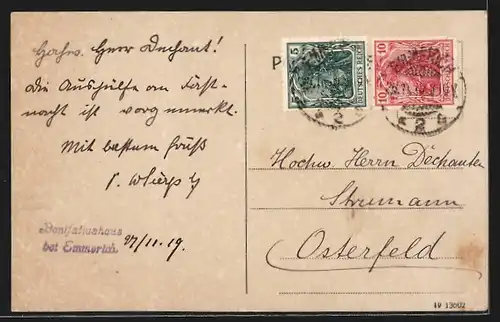 Hochw. Herr Dechant!
die Aushülfe am Fast-
nacht ist vorgemerkt.
Mit bestem Gruß
Bonifatiushaus
bei Emmerich.
27/11.19.
P
5
DEUTSCHES REICH
10
DEUTSCHES REICH
10
Hochw. Herrn Dechanten
Strumann
Osterfeld
49 13602